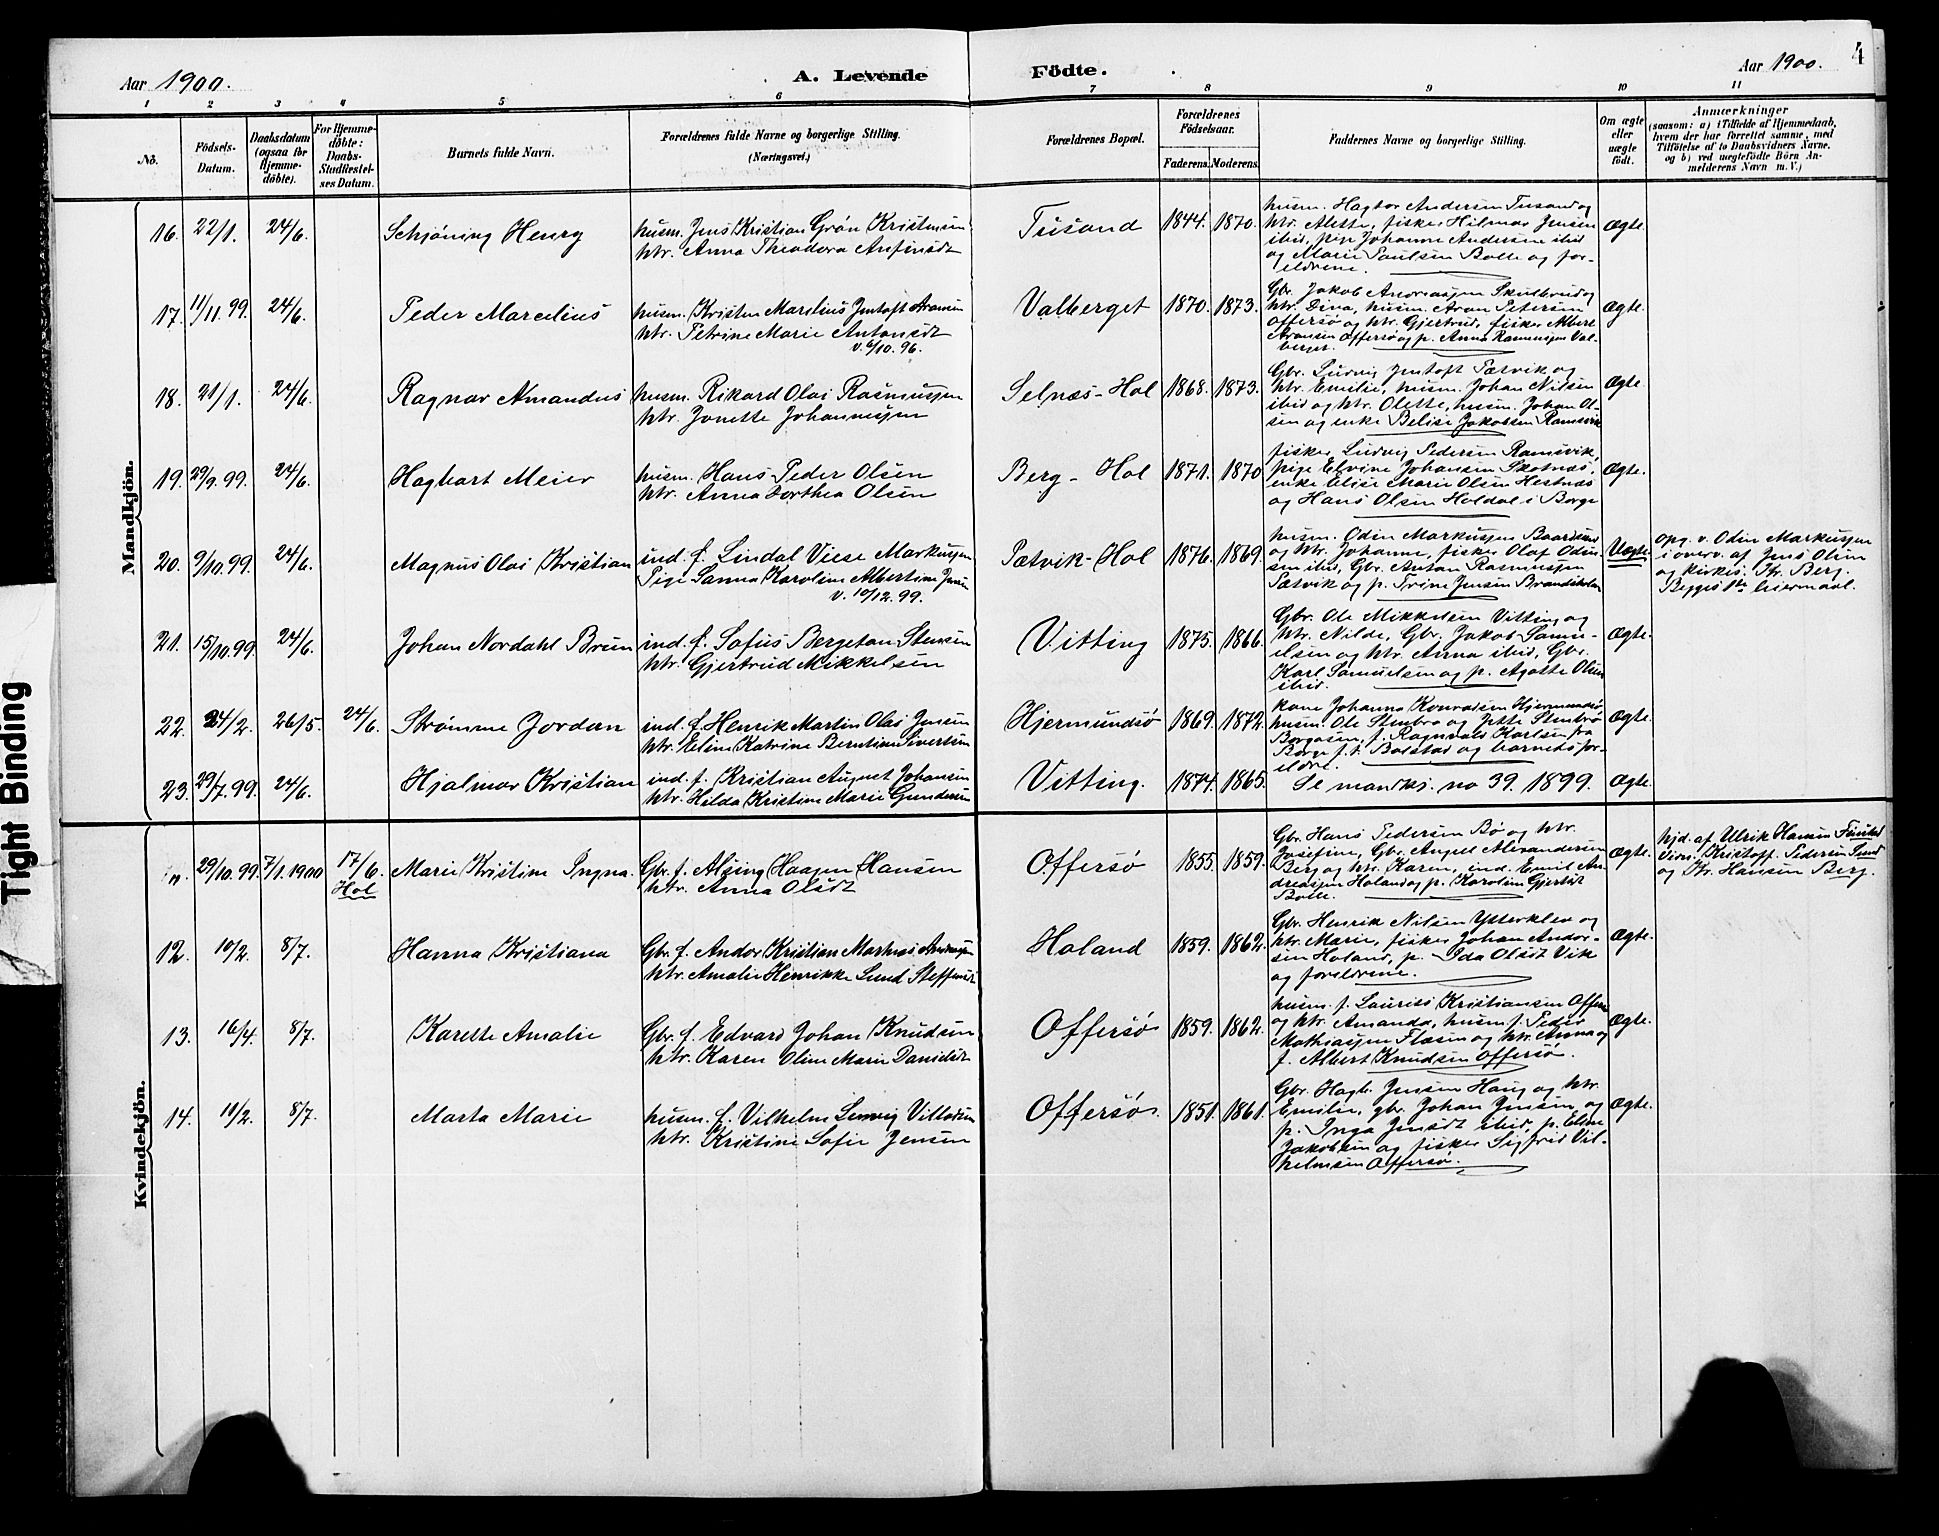 Aar 1900.
A. Levende Födte.
Aar 1900. 4
1 2 3 4 5 6 7 8 9 10 11
No.
Födsels-Datum.
Daabsdatum (ogsaa for Hjemme-döbte).
For Hjemme-döbte: Daabs-Stadfæstel-ses Datum.
Barnets fulde Navn.
Forældrenes fulde Navne og borgerlige Stilling. (Næringsvei.)
Forældrenes Bopæl.
Forældrenes Födselsaar.
Faderens. Moderens.
Faddernes Navne og borgerlige Stilling.
Om ægte eller uægte födt.
Anmærkninger
(saasom: a) i Tilfælde af Hjemmedaab,
hvem der har forrettet samme, med
Tilföielse af to Daabsvidners Navne,
og b) ved uægtefödte Börn An-
melderens Navn m. V.)
Mandkjön.
16. 22/1. 24/6. Schjöning Henry
husm. Jens Kristian Grön Kristensen
htr. Anna Theodora Anfinsdt
Tusand 1844. 1870.
husm. Hagbar Andersen Tusand og
htr. Alette, fisker Hilmar Jensen
ibid, pige Johanne Andersen ibid
og Marie Paulsen Bolle og for-
eldrene.
Ægte.
17. 11/11.99. 24/6. Peder Marcelius
husm. Kristen Marelius Jentoft Aronsen
htr. Petrine Marie Antonsdt
v. 6/10.96.
Valberget 1870. 1873.
Gbr. Jakob Andreassen Skulbrud og
htr. Dina, husm. Aron Petersen
Offersø og htr. Gjertrud, fisker Albert
Aronsen Offersø og p. Anna Rasmussen Val-
berget.
Ægte.
18. 21/1. 24/6. Ragnar Amandus
husm. Rikard Olai Rasmussen
htr. Jonette Johannessen
Selnæs-Hol 1868. 1873.
Gbr. Ludvig Jentoft Petvik og
htr. Emilie, husm. Johan Nilsen
ibid og htr. Olette, husm. Johan Ol-
sen og enke Belise Jakobsen Ramsvik
Ægte.
19. 29/9.99. 24/6. Hagbart Meier
husm. Hans Peder Olsen
htr. Anna Dorthea Olsen
Berg - Hol 1871. 1870
fisker Ludvig Pedersen Ramsvik,
pige Elvine Johansen Skotnæs,
enke Elise Marie Olsen Hestnæs
og Hans Olsen Holdal i Borge
Ægte.
20. 9/10.99. 24/6. Magnus Olai Kristian
ind. f. Lindal Viese Markussen
Pige Sanna Karoline Albertine Jensen
v. 10/12.99.
Petvik-Hol 1876. 1869.
husm. Odin Markussen Baardsund
og htr. Johanne, fisker Olaf Odin-
sen ibid, Gbr. Anton Rasmussen
Petvik og p. Trine Jensen Brandsholmen
Uægte
opg. v. Odin Markussen
i overv. af Jens Olsen
og kirkes. Kr. Berg.
Begges 1ste leiermaal.
21. 15/10.99. 24/6. Johan Nordahl Brun
ind. f. Sofus Bergetan Stensen
htr. Gjertrud Mikkelsen
Vitting 1875. 1866.
Gbr. Ole Mikkelsen Vitting og
htr. Nilde, Gbr. Jakob Samu-
elsen og htr. Anna ibid, Gbr.
Karl Samuelsen og p. Agathe Olsen
ibid.
Ægte.
22. 24/2. 26/5. 24/6. Strömme Jordan
ind. f. Henrik Martin Olai Jensen
htr. Eline Katrine Berntine Sivertsen
Hjermundsö 1869. 1872.
kone Johanna Konradsen Hjermundsö,
husm. Ole Stenbro og Jette Stenbro
Borgøsen, f. Ragnvald Karlsen fra
Borge p.t. Bolstad og barnets for-
eldre.
Ægte.
23. 29/7.99. 24/6. Hjalmar Kristian
ind. f. Kristian August Johansen
htr. Hilda Kristine Marie Gundersen
Vitting. 1874. 1865.
Se mandkj. no 39. 1899.
Ægte.
Kvindekjön.
29/10.99. 7/1.1900 17/6. Hol
Marie Kristine Ingna.
Gbr. f. Alsing Haagen Hansen
htr. Anna Olsdt
Offersö 1855. 1859.
Gbr. Hans Pedersen Bö og htr.
Josefine, Gbr. Angel Alexandersen
Berg og htr. Karen, ind. Emil An-
dreassen Holand og p. Karoline Gjertsdt
Bolle.
Ægte.
hjd. af Ulrik Hansen
Vidn. Kristoff. Pedersen Sund
og Kr. Hansen Berg.
12. 10/2. 8/7. Hanna Kristiana
Gbr. f. Andor Kristian Mathias Andreassen
htr. Amalie Henrikke Lund Steffensdt
Holand 1859. 1862.
Gbr. Henrik Nilsen Ytterklev og
htr. Marie, fisker Johan Andor-
sen Holand, p. Ida Olsdt Vik
og foreldrene.
Ægte.
13. 16/4. 8/7. Karelte Amalie
Gbr. f. Edvard Johan Knudsen
htr. Karen Oline Marie Danielsdt
Offersö 1859. 1862.
husm. f. Laurits Kristiansen Offersø
og htr. Amanda, husm. f. Peder
Mathiassen Flæsen og htr. Anna og
f. Albert Knudsen Offersø.
Ægte.
14. 11/2. 8/7. Marta Marie
husm. f. Vilhelm Ludvig Villadsen
htr. Kristine Sofie Jensen
Offersö. 1851. 1861.
Gbr. Hagb. Jensen Haug og htr.
Emilie, gbr. Johan Jensen og
p. Inga Jensdt ibid, p. Eline
Jakobsen og fisker Sigfrid Vil-
helmsen Offersø.
Ægte.
Tight Binding